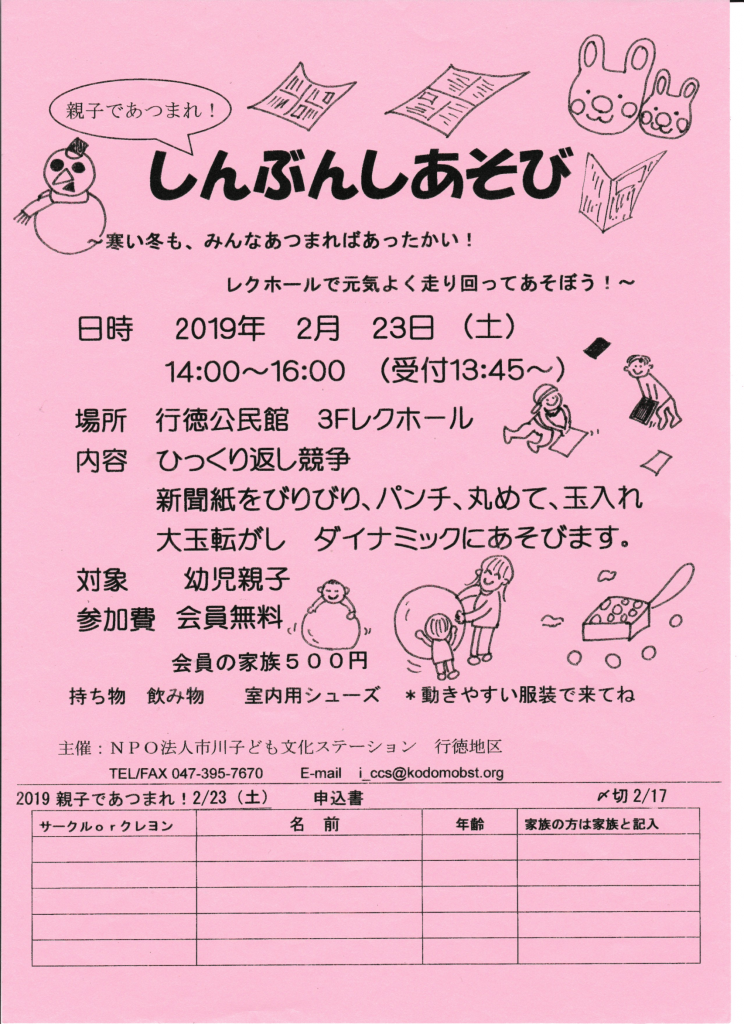 親子であつまれ！
しんぶんしあそび
～寒い冬も、みんなあつまればあったかい！
レクホールで元気よく走り回ってあそぼう！～
日時　2019年　2月　23日　（土）
14:00～16:00　（受付13:45～）
場所　行徳公民館　3Fレクホール
内容　ひっくり返し競争
新聞紙をびりびり、パンチ、丸めて、玉入れ
大玉転がし　ダイナミックにあそびます。
対象　幼児親子
参加費　会員無料
会員の家族５００円
持ち物　飲み物　室内用シューズ　＊動きやすい服装で来てね
主催：ＮＰＯ法人市川子ども文化ステーション　行徳地区
TEL/FAX 047-395-7670　E-mail　i_ccs@kodomobst.org
2019 親子であつまれ！2/23（土）　申込書　〆切 2/17
サークルｏｒクレヨン　名　前　年齢　家族の方は家族と記入